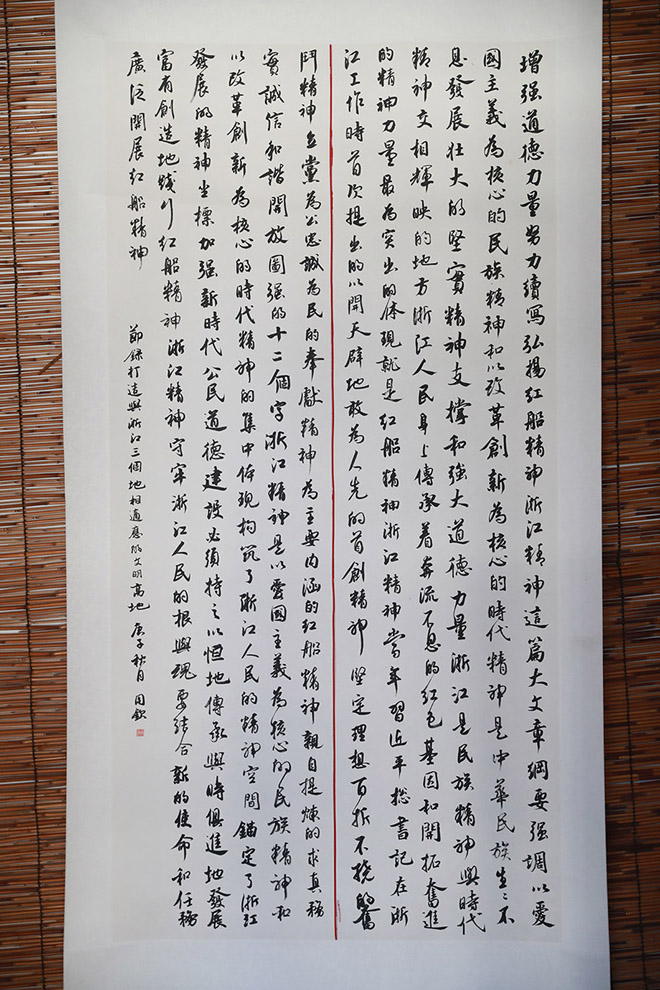 增强道德力量努力續寫弘揚紅船精神浙江精神這篇大文章綱要强調以愛
國主義為核心的民族精神和以改革創新為核心的時代精神是中華民族生生不
息發展壮大的堅實精神支撑和强大道德力量浙江是民族精神與時代
精神交相輝映的地方浙江人民身上傳承着奔流不息的红色基因和開拓奮進
的精神力量最為突出的体現就是红船精神浙江精神當年習近平総書記在浙
江工作時首次提出的以開天辟地敢為人先的首創精神堅定理想百折不撓的奮
鬥精神立黨為公忠誠為民的奉獻精神為主要内涵的红船精神親自提煉的求真務
實誠信和諧開放圖强的十二個字浙江精神是以愛國主義為核心的民族精神和
以改革創新為核心的時代精神的集中体現构筑了浙江人民的精神空間錨定了浙江
發展的精神坐標加强新時代公民道德建設必須持之以恒地傳承與時俱進地發展
富有創造地踐行红船精神浙江精神守牢浙江人民的根與魂要結合新的使命和任務
廣泛開展红船精神
節錄打造與浙江三個地相適應的文明高地 庚子秋月 国欽